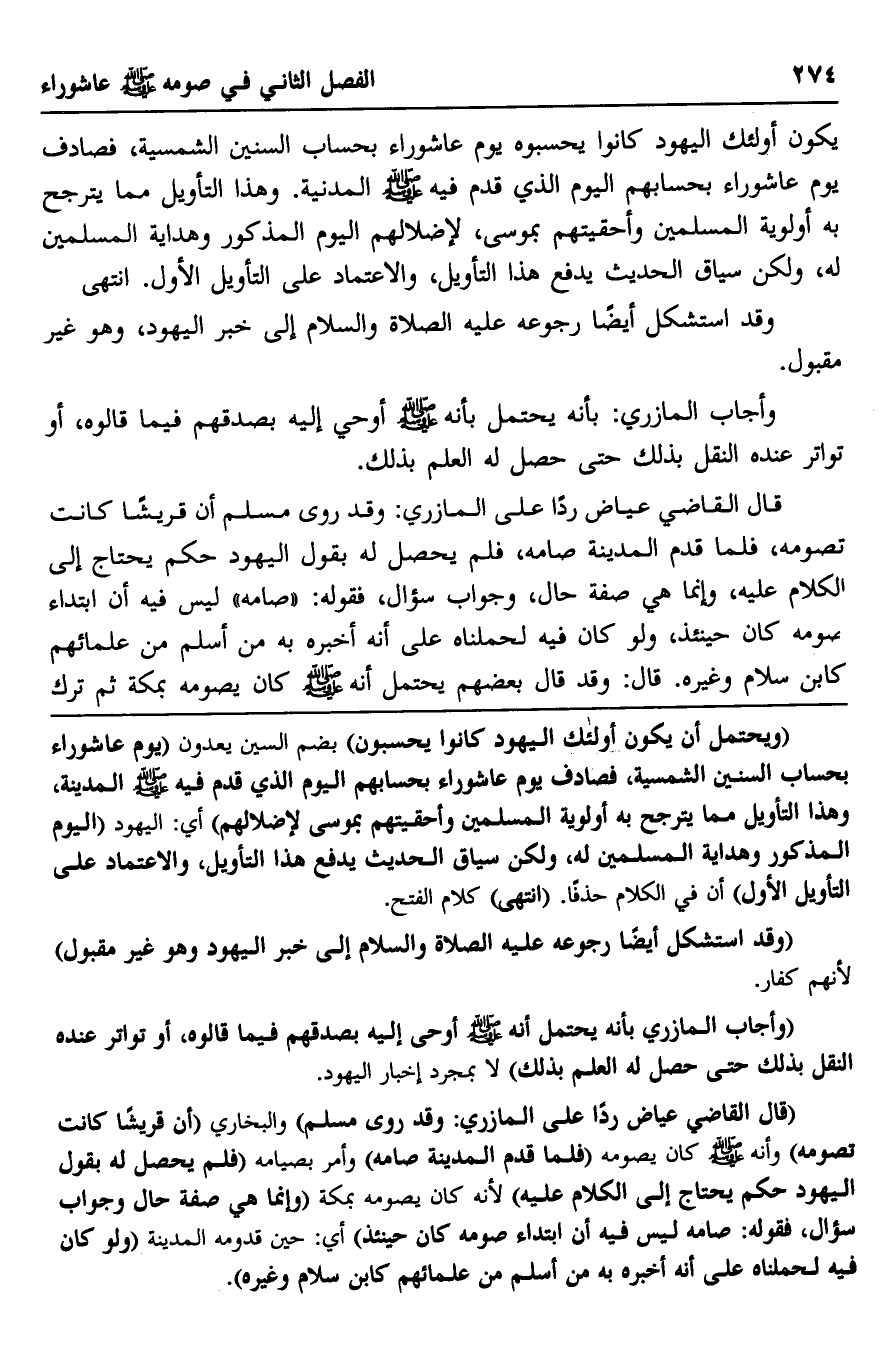 ٢٧٤ الفصل الثاني في صومه ﷺ عاشوراء
يكون أولئك اليهود كانوا يحسبوه يوم عاشوراء بحساب السنين الشمسية، فصادف
يوم عاشوراء بحسابهم اليوم الذي قدم فيه ﷺ المدنية. وهذا التأويل مما يترجح
به أولوية المسلمين وأحقيتهم بموسى، لإضلالهم اليوم المذكور وهداية المسلمين
له، ولكن سياق الحديث يدفع هذا التأويل، والاعتماد على التأويل الأول. انتهى
وقد استشكل أيضًا رجوعه عليه الصلاة والسلام إلى خبر اليهود، وهو غير
مقبول.
وأجاب المازري: بأنه يحتمل بأنه ﷺ أوحي إليه بصدقهم فيما قالوه، أو
تواتر عنده النقل بذلك حتى حصل له العلم بذلك.
قال القاضي عياض ردًا على المازري: وقد روى مسلم أن قريشًا كانت
تصومه، فلما قدم المدينة صامه، فلم يحصل له بقول اليهود حكم يحتاج إلى
الكلام عليه، وإنما هي صفة حال، وجواب سؤال، فقوله: «صامه» ليس فيه أن ابتداء
صومه كان حينئذ، ولو كان فيه لحملناه على أنه أخبره به من أسلم من علمائهم
كابن سلام وغيره. قال: وقد قال بعضهم يحتمل أنه ﷺ كان يصومه بمكة ثم ترك
(ويحتمل أن يكون أولئك اليهود كانوا يحسبون) بضم السين يعدون (يوم عاشوراء
بحساب السنين الشمسية، فصادف يوم عاشوراء بحسابهم اليوم الذي قدم فيه ﷺ المدينة،
وهذا التأويل مما يترجح به أولوية المسلمين وأحقيتهم بموسى لإضلالهم) أي: اليهود (اليوم
المذكور وهداية المسلمين له، ولكن سياق الحديث يدفع هذا التأويل، والاعتماد على
التأويل الأول) أن في الكلام حذفًا. (انتهى) كلام الفتح.
(وقد استشكل أيضًا رجوعه عليه الصلاة والسلام إلى خبر اليهود وهو غير مقبول)
لأنهم كفار.
(وأجاب المازري بأنه يحتمل أنه ﷺ أوحى إليه بصدقهم فيما قالوه، أو تواتر عنده
النقل بذلك حتى حصل له العلم بذلك) لا بمجرد إخبار اليهود.
(قال القاضي عياض ردًا على المازري: وقد روى مسلم) والبخاري (أن قريشًا كانت
تصومه) وأنه ﷺ كان يصومه (فلما قدم المدينة صامه) وأمر بصيامه (فلم يحصل له بقول
اليهود حكم يحتاج إلى الكلام عليه) لأنه كان يصومه بمكة (وإنما هي صفة حال وجواب
سؤال، فقوله: صامه ليس فيه أن ابتداء صومه كان حينئذ) أي: حين قدومه المدينة (ولو كان
فيه لحملناه على أنه أخبره به من أسلم من علمائهم كابن سلام وغيره).